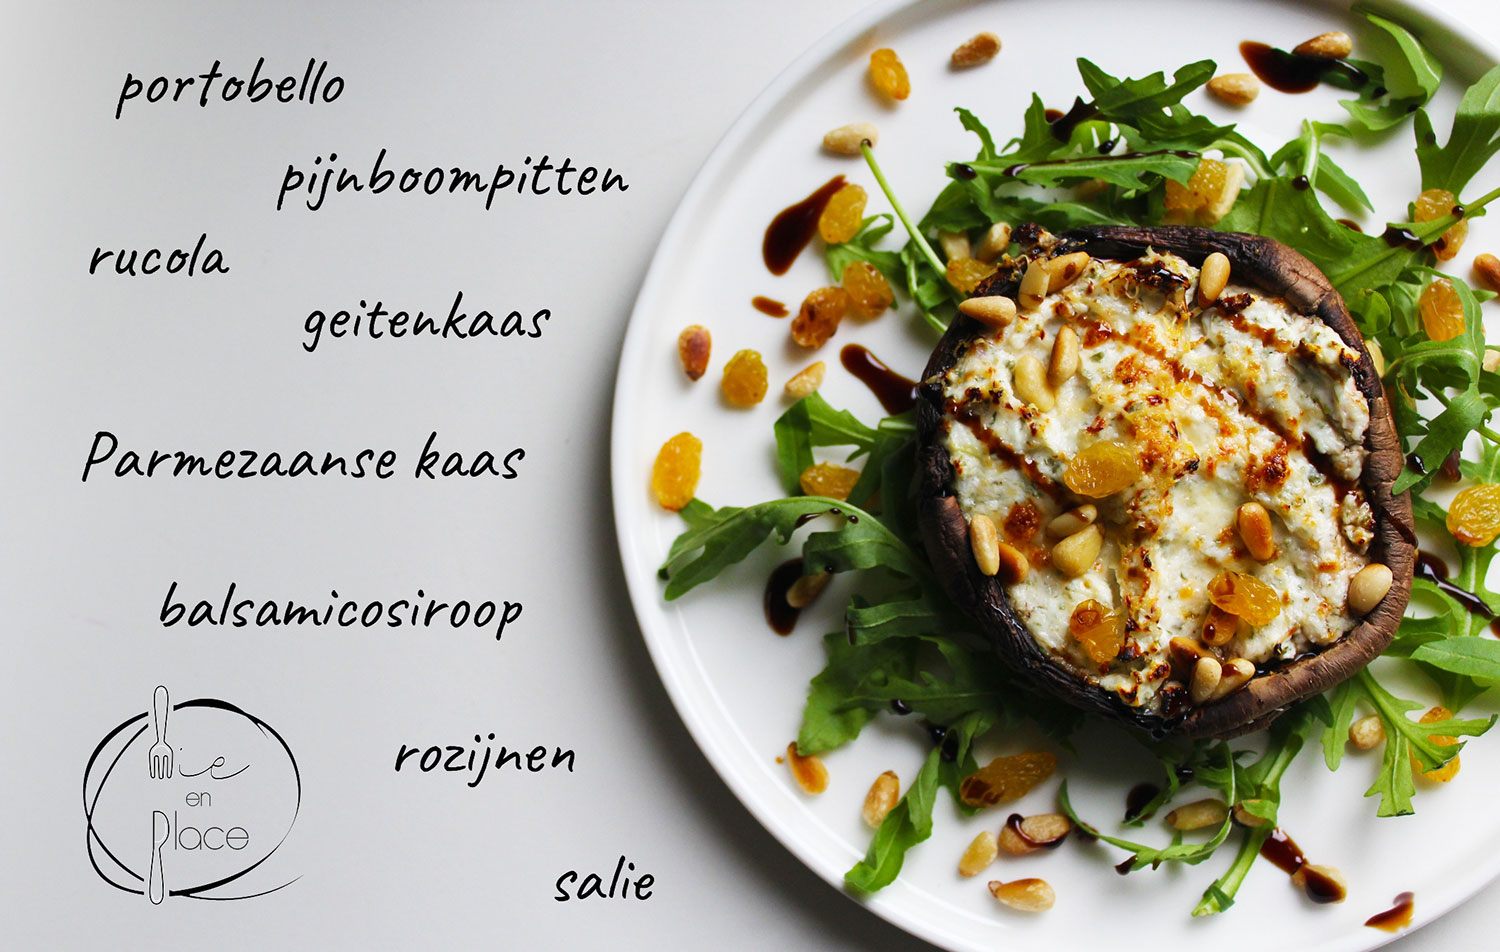 portobello
pijnboompitten
rucola
geitenkaas
Parmezaanse kaas
balsamicosiroop
rozijnen
salie
Mie
en
Place